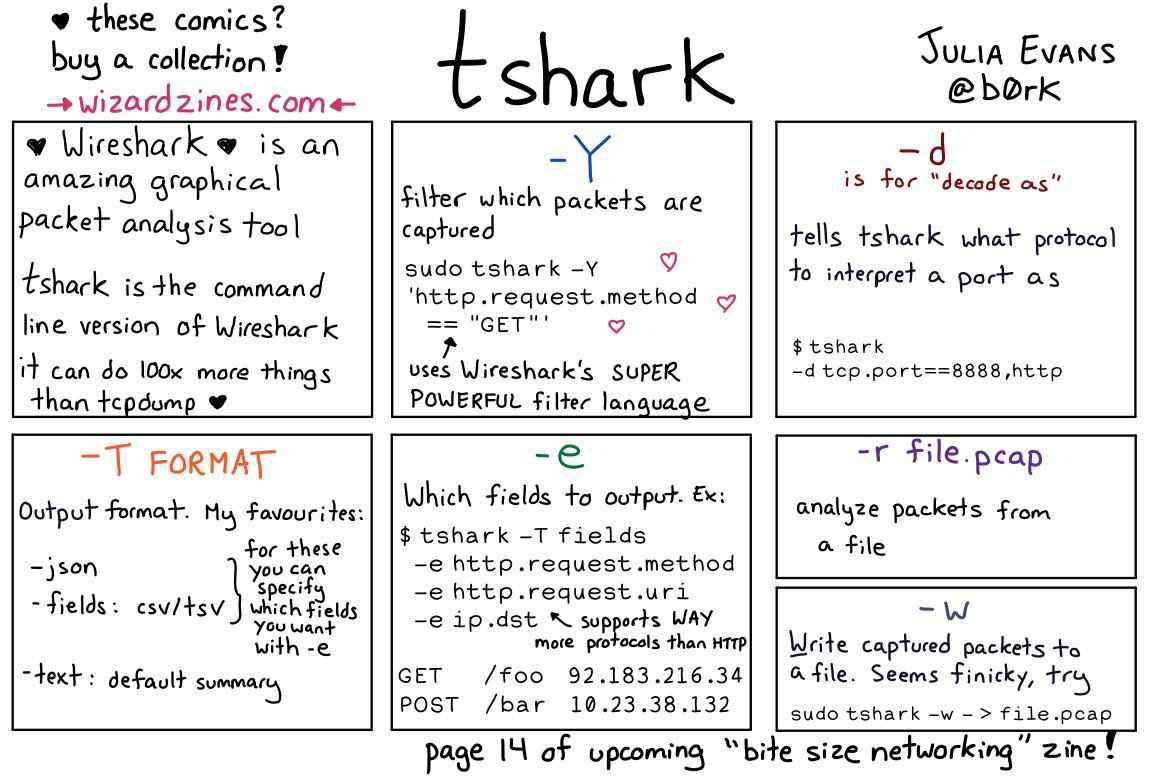 ♥ these comics?
buy a collection!
→wizardzines.com←
tshark
JULIA EVANS
@b0rk
♥ Wireshark ♥ is an
amazing graphical
packet analysis tool
tshark is the command
line version of Wireshark
it can do 100x more things
than tcpdump ♥
-Y
filter which packets are
captured
sudo tshark -Y
'http.request.method
== "GET"'
uses Wireshark's SUPER
POWERFUL filter language
-d
is for "decode as"
tells tshark what protocol
to interpret a port as
$ tshark
-d tcp.port==8888,http
-T FORMAT
Output format. My favourites:
-json
- fields: csv/tsv
for these
you can
specify
which fields
you want
with -e
-text: default summary
-e
Which fields to output. Ex:
$ tshark -T fields
-e http.request.method
-e http.request.uri
-e ip.dst
supports WAY
more protocols than HTTP
GET /foo 92.183.216.34
POST /bar 10.23.38.132
-r file.pcap
analyze packets from
a file
-w
Write captured packets to
a file. Seems finicky, try
sudo tshark -w - > file.pcap
page 14 of upcoming "bite size networking" zine!